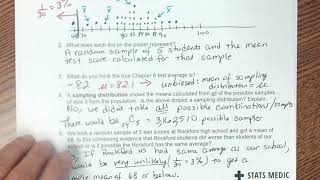 1/30 = 3%
x̄
100
2. What does each dot on the poster represent?
A random sample of 5 students and the mean
test score calculated for that sample
3. What do you think the true Chapter 6 test average is?
~82 μ = 82.1 → unbiased: mean of sampling
distribution = μ.
4. A sampling distribution shows the means calculated from all of the possible samples
of size 5 from the population. Is the above dotplot a sampling distribution? Explain.
No, we didn't take all possible combinations/samples
There would be C5 = possible samples
5. We took a random sample of 5 test scores at Rockford high school and got a mean of
68. Is this convincing evidence that Rockford students
If Rockford HS had same average as our school,
would be very unlikely (1/30 = 3%) to get a
mean of 68 or below.
STATS MEDIC